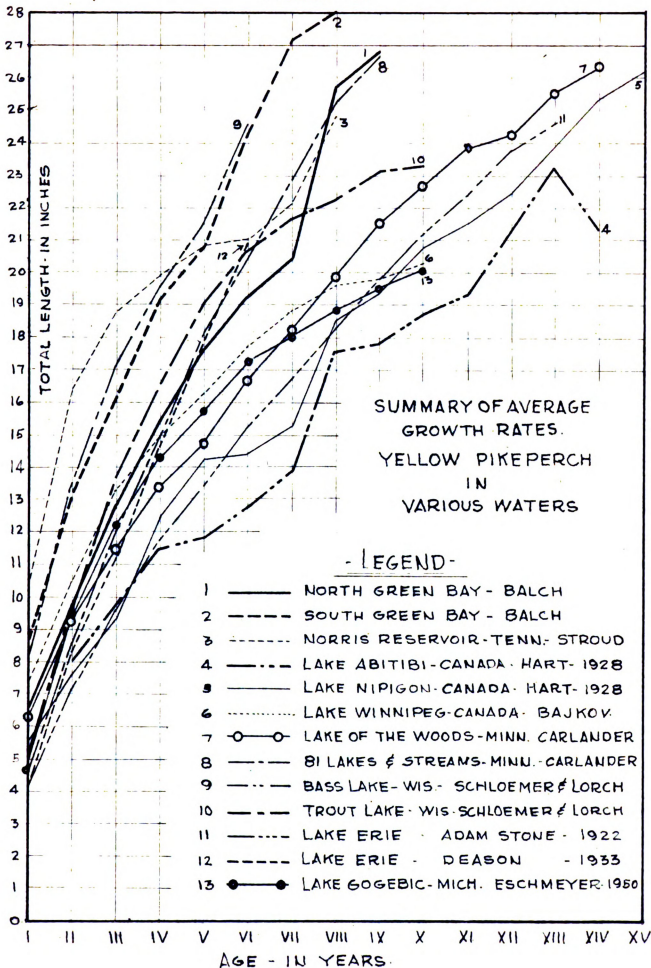 28
27
26
25
24
23
22
21
20
19
18
17
16
15
14
13
12
11
10
9
8
7
6
5
4
3
2
1
0
TOTAL LENGTH - IN INCHES
2
1
8
9
3
7
5
11
10
4
12
6
13
SUMMARY OF AVERAGE
GROWTH RATES.
YELLOW PIKEPERCH
IN
VARIOUS WATERS
- LEGEND -
1 NORTH GREEN BAY - BALCH
2 SOUTH GREEN BAY - BALCH
3 NORRIS RESERVOIR - TENN. - STROUD
4 LAKE ABITIBI - CANADA - HART - 1928
5 LAKE NIPIGON - CANADA - HART - 1928
6 LAKE WINNIPEG - CANADA - BAJKOV.
7 LAKE OF THE WOODS - MINN. CARLANDER
8 81 LAKES & STREAMS - MINN. - CARLANDER
9 BASS LAKE - WIS - SCHLOEMER & LORCH
10 TROUT LAKE - WIS. SCHLOEMER & LORCH
11 LAKE ERIE - ADAM STONE - 1922
12 LAKE ERIE - DEASON - 1933
13 LAKE GOGEBIC - MICH. ESCHMEYER - 1950
I II III IV V VI VII VIII IX X XI XII XIII XIV XV
AGE - IN YEARS.